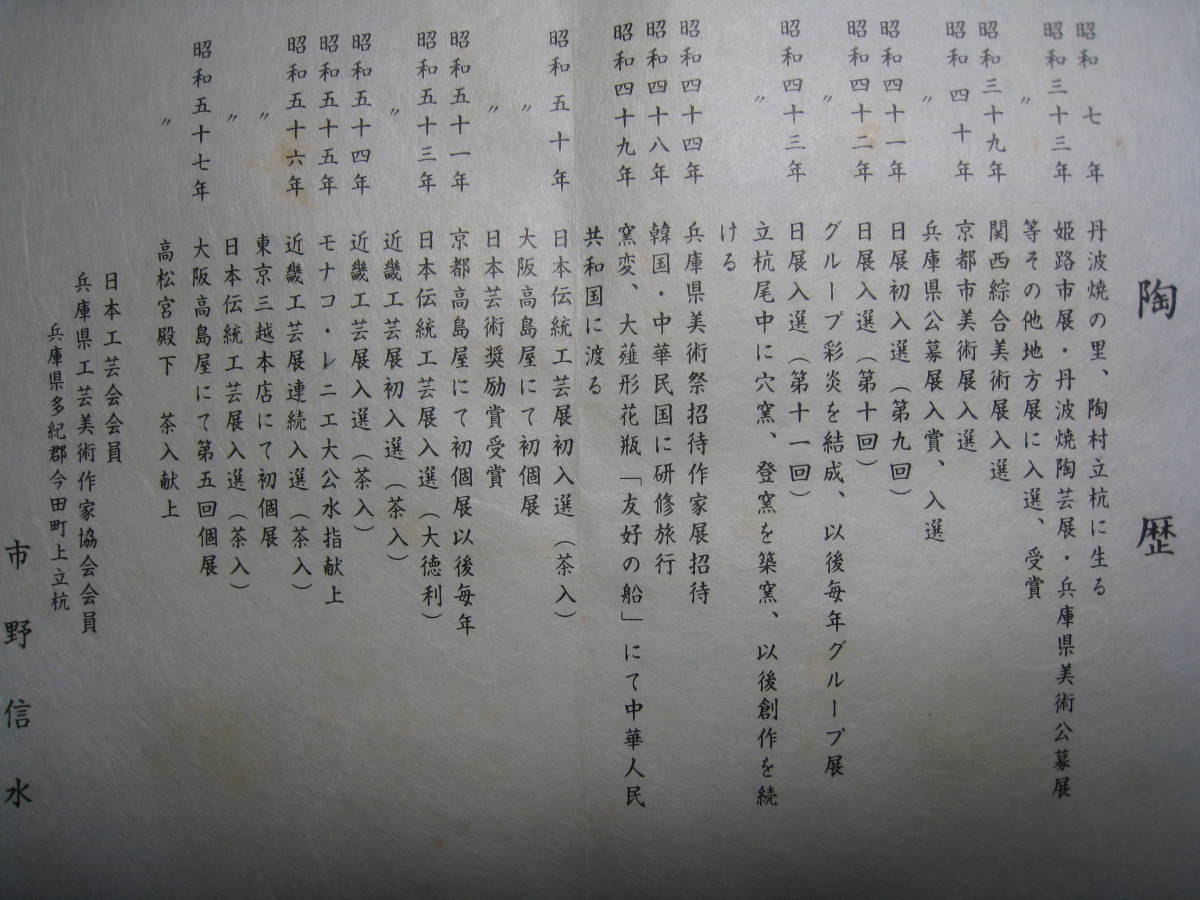 陶歴
昭和七年 丹波焼の里、陶村立杭に生る
昭和三十三年 姫路市展・丹波焼陶芸展・兵庫県美術公募展
〃 等その他地方展に入選、受賞
昭和三十九年 関西綜合美術展入選
昭和四十年 京都市美術展入選
〃 兵庫県公募展入賞、入選
昭和四十一年 日展初入選(第九回)
昭和四十二年 日展入選(第十回)
〃 グループ彩炎を結成、以後毎年グループ展
昭和四十三年 日展入選(第十一回)
〃 立杭尾中に穴窯、登窯を築窯、以後創作を続
ける
昭和四十四年 兵庫県美術祭招待作家展招待
昭和四十八年 韓国・中華民国に研修旅行
昭和四十九年 窯変、大薤形花瓶「友好の船」にて中華人民
共和国に渡る
昭和五十年 日本伝統工芸展初入選(茶入)
〃 大阪高島屋にて初個展
〃 日本芸術奨励賞受賞
昭和五十一年 京都高島屋にて初個展以後毎年
昭和五十三年 日本伝統工芸展入選(大徳利)
〃 近畿工芸展初入選(茶入)
昭和五十四年 近畿工芸展入選(茶入)
昭和五十五年 モナコ・レニエ大公水指献上
昭和五十六年 近畿工芸展連続入選(茶入)
〃 東京三越本店にて初個展
〃 日本伝統工芸展入選(茶入)
昭和五十七年 大阪高島屋にて第五回個展
〃 高松宮殿下 茶入献上
日本工芸会会員
兵庫県工芸美術作家協会会員
兵庫県多紀郡今田町上立杭
市野信水